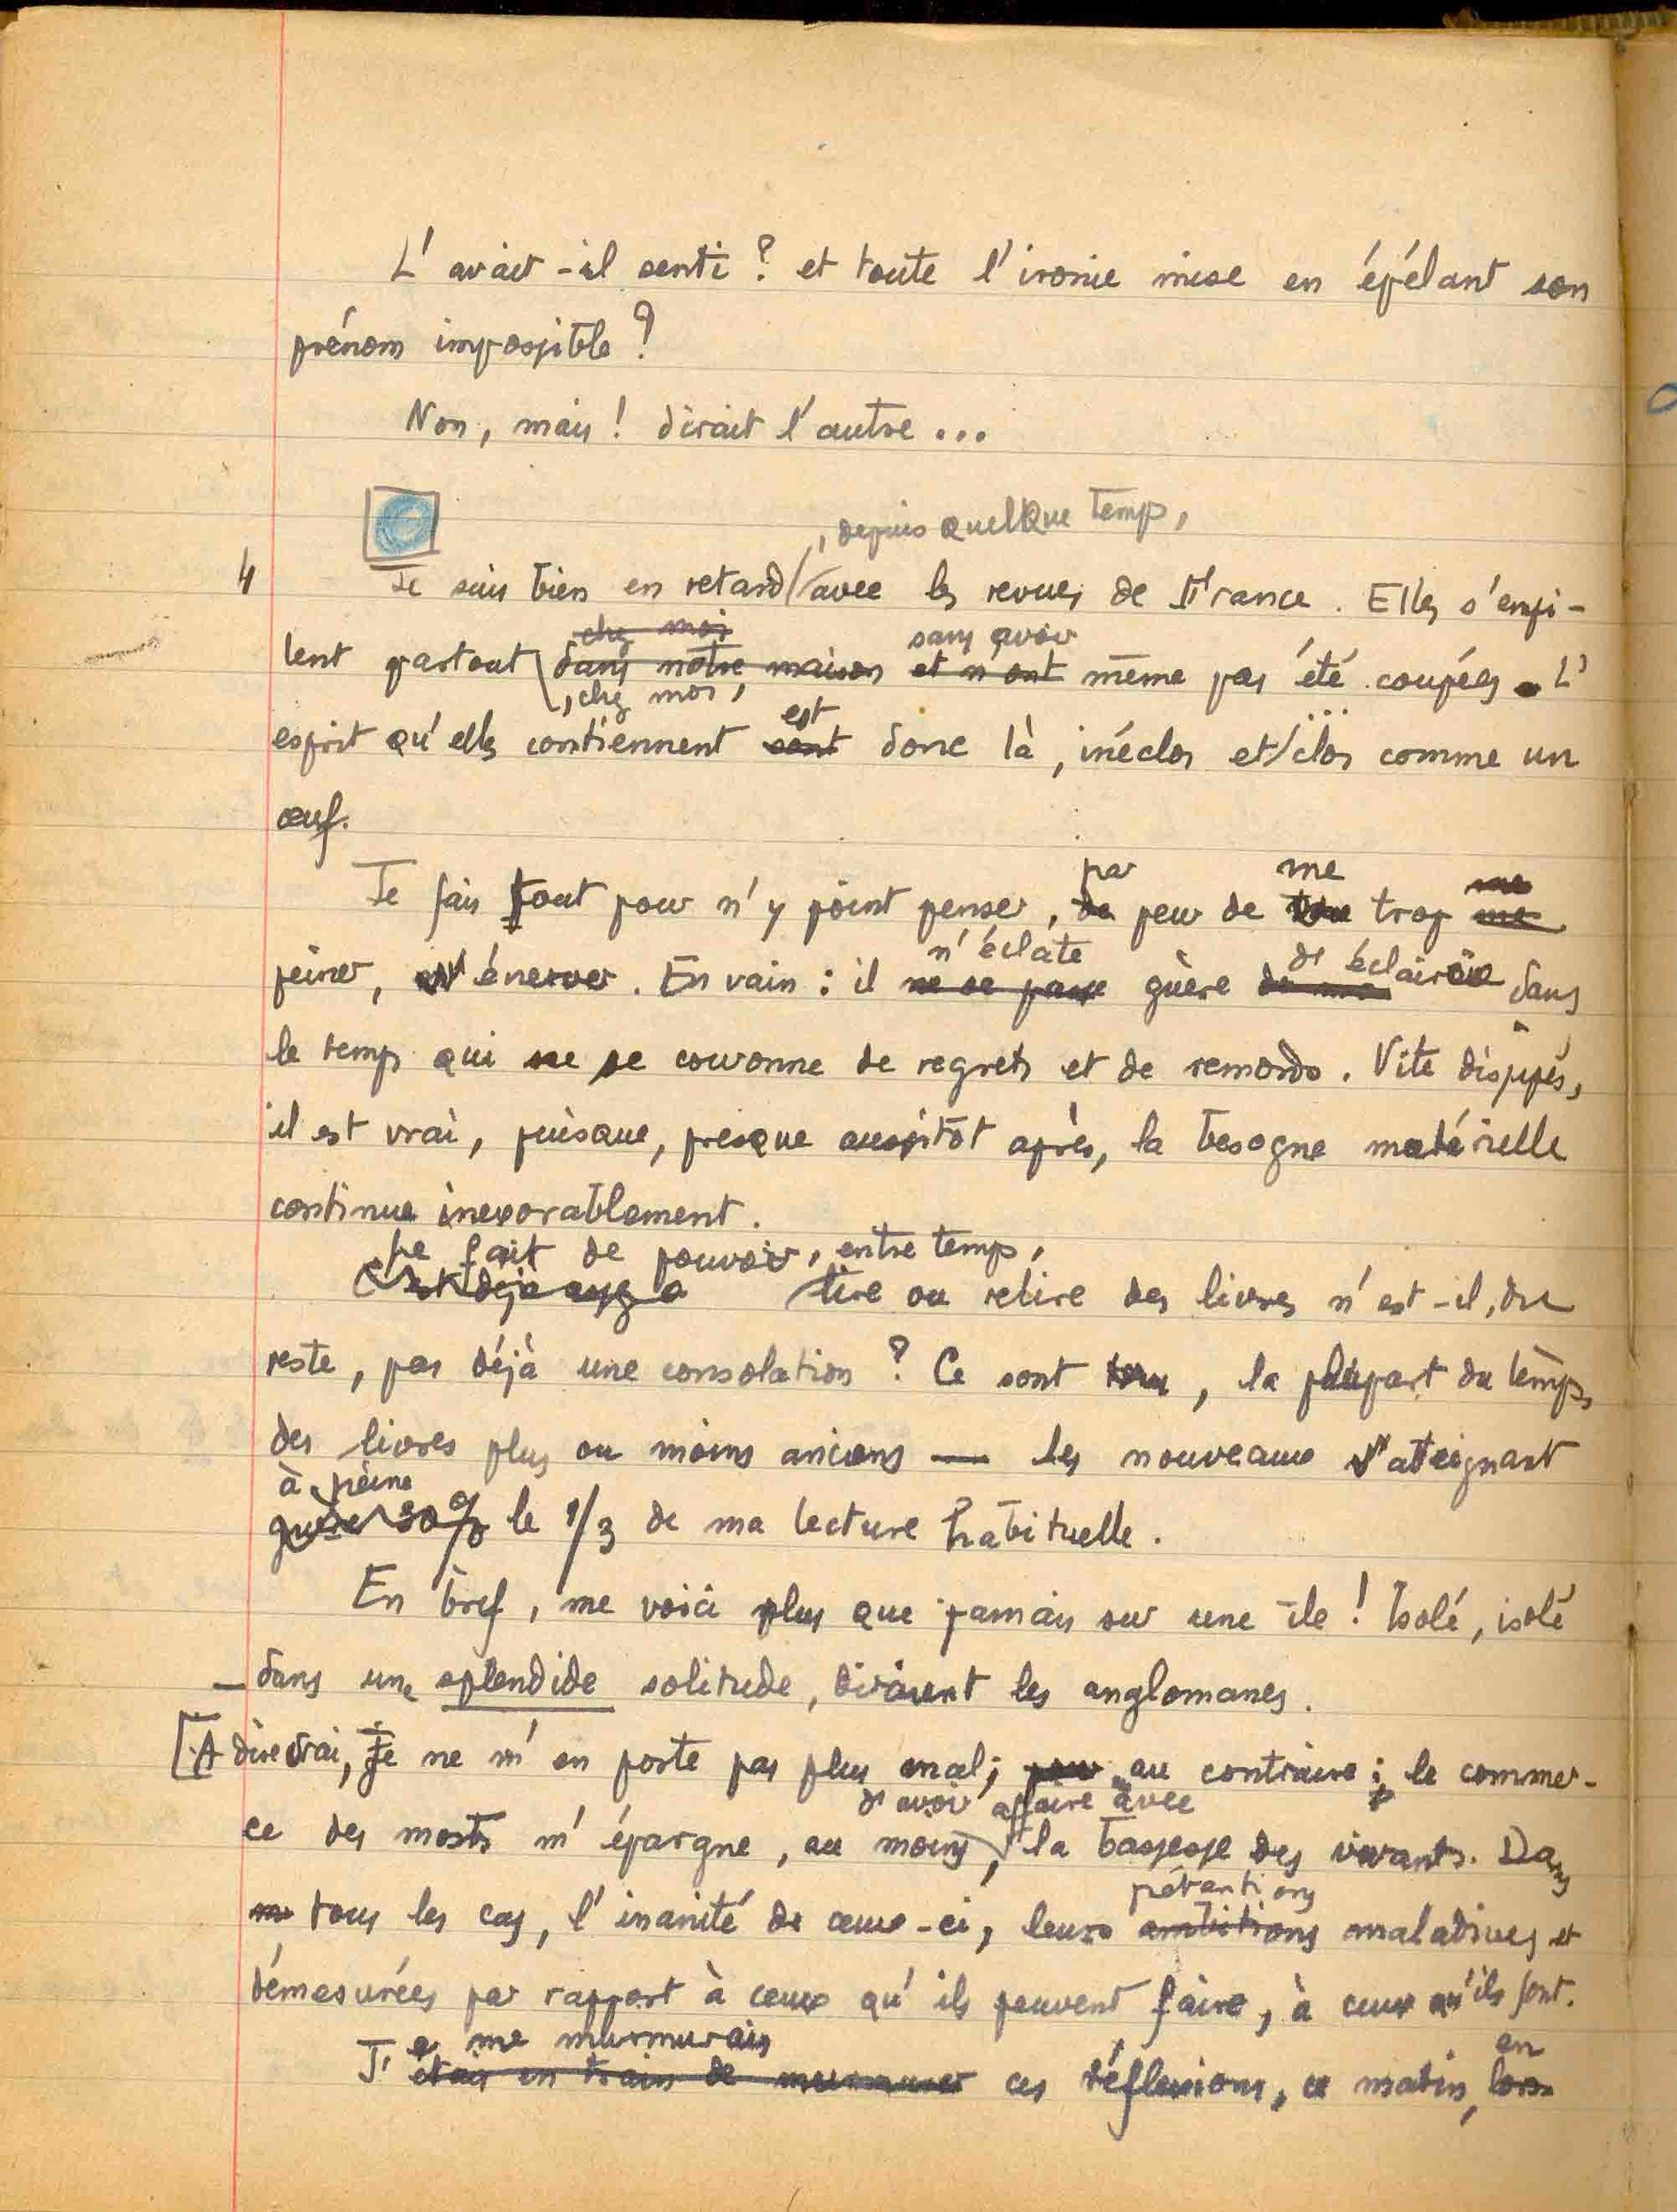 L'avait-il senti ? et toute l'ironie mise en épélant son
prénom impossible ?
Non, mais ! dirait l'autre ...
, depuis quelque temps,
4 Je suis bien en retard avec les revues de France. Elles s'empi-
chez moi
sans avoir
lent partout dans notre maison et n'ont même pas été coupées. L'
, chez moi,
est
esprit qu'elles contiennent sont donc là, inéclos et/clos comme un
...
œuf.
par me me
Je fais tout pour n'y point penser, de peur de trop me
n'éclate d'éclaircie
peiner, m'énerver. En vain : il ne se passe guère dans
le temps qui ne se couronne de regrets et de remords. Vite dissipés,
il est vrai, puisque, presque aussitôt après, la besogne matérielle
continue inexorablement.
Le fait de pouvoir, entre temps,
C'est déjà lire ou relire des livres n'est-il, du
reste, pas déjà une consolation ? Ce sont , la plupart du temps,
des livres plus ou moins anciens — les nouveaux n'atteignant
à peine
guère 30% le 1/3 de ma lecture habituelle.
En bref, me voici plus que jamais sur une île ! Isolé, isolé
— dans une splendide solitude, diraient les anglomanes.
[A dire vrai, Je ne m'en porte pas plus mal ; au contraire : le commer-
d'avoir affaire avec
ce des morts m'épargne, au moins, la bassesse des vivants. Dans
prétentions
tous les cas, l'inanité de ceux-ci, leurs ambitions maladives et
démesurées par rapport à ceux qu'ils peuvent faire, à ceux qu'ils font.
e me murmurais en
J'étais en train de murmurer ces réflexions, ce matin, lors